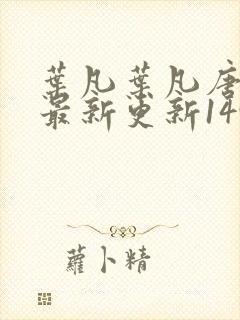 葉凡葉凡唐
最新更新14
蘿卜精